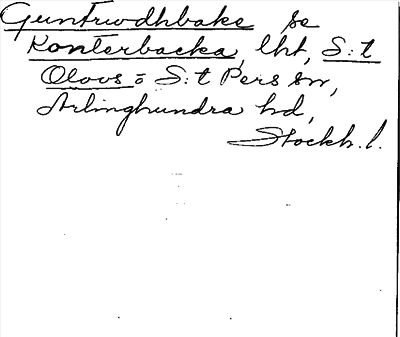 Guntrwdhbake se
Konterbacka, lht, S:t
Olovs = S:t Pers sn,
Ärlinghundra hd,
Stockh. l.